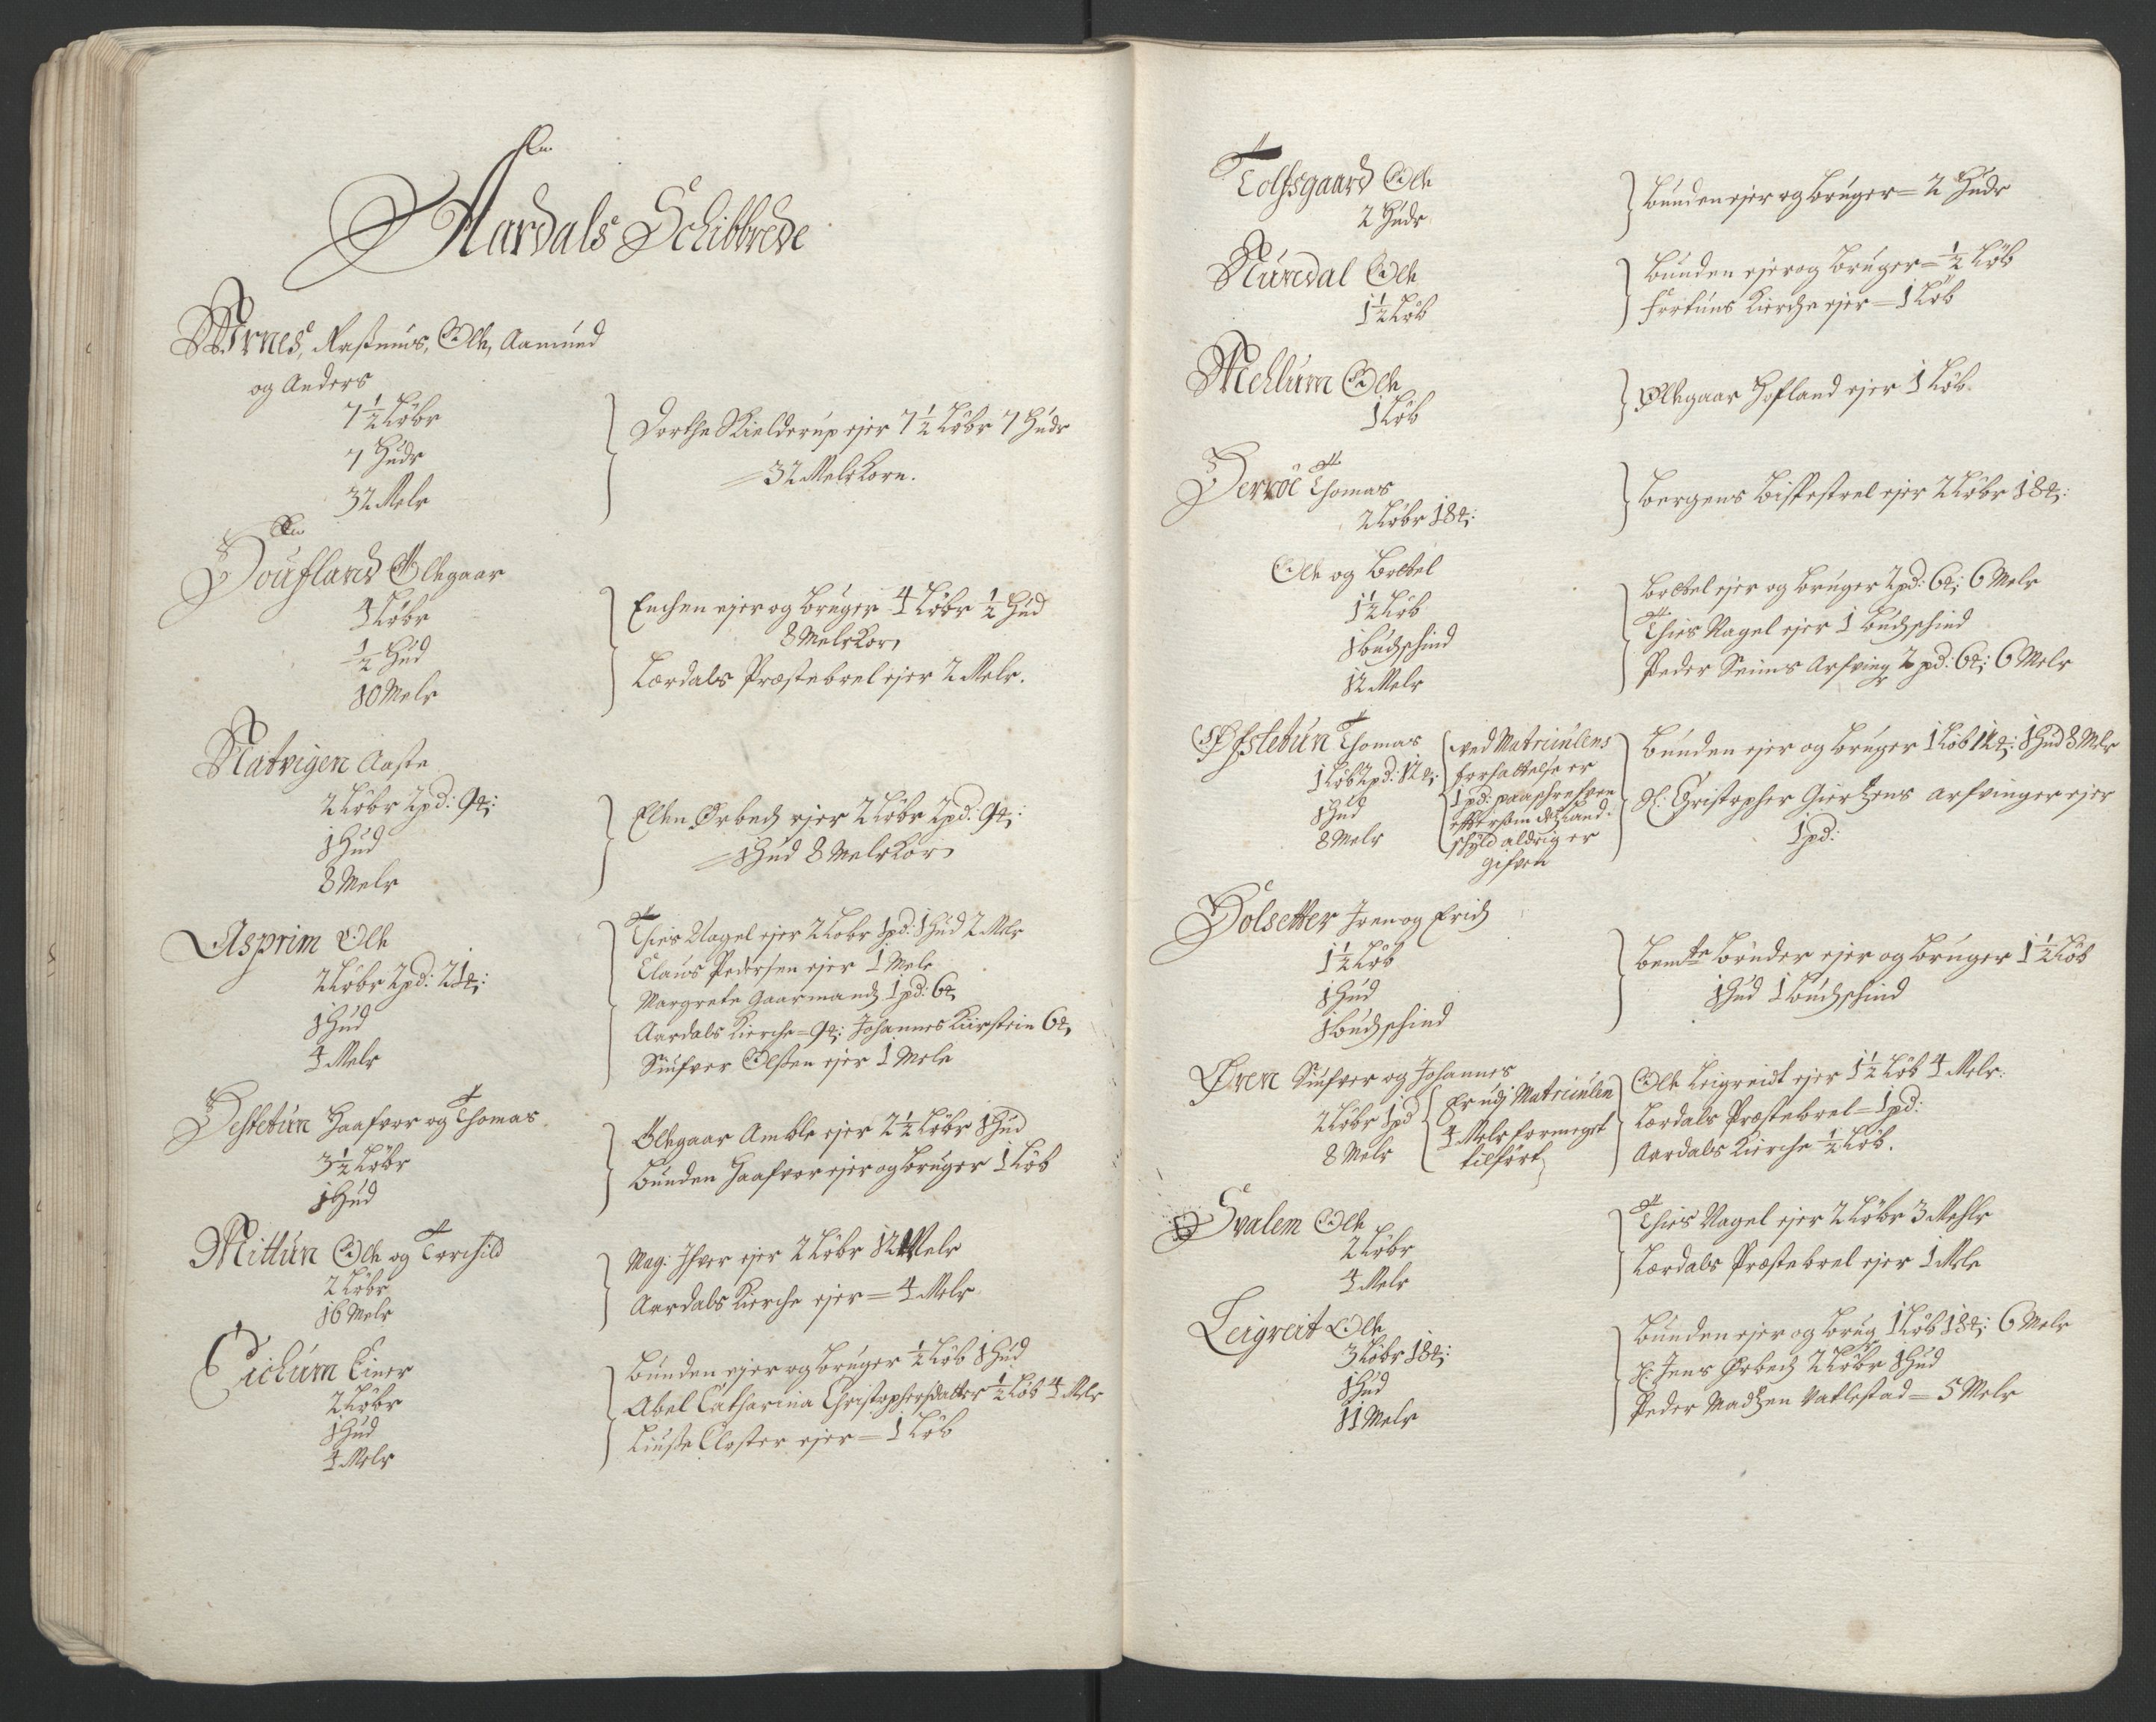 Aardals Schibbrede
Arnes, Rasmus, Ole, Aamund
og Anders
7 1/2 Løbr
7 Hudr
32 Melr
Dorthe Kielderup ejer 7 1/2 Løbr 7 Hudr
= 32 Melr Korn.
Houfland Ollegaar
4 Løbr
1/2 Hud
10 Melr
Enchen ejer og bruger 4 Løbr 1/2 Hud
8 Melr Korn
Lærdals Præstebrel ejer 2 Melr.
Natvigen Aaste
2 Løbr 2 pd: 9 ℔:
1 Hud
8 Melr
Ellen Orbech ejer 2 Løbr 2 pd: 9 ℔:
= 1 Hud 8 Melr Korn
Asprim Ole
2 Løbr 2 pd: 21 ℔:
1 Hud
4 Melr
Thies Nagel ejer 2 Løbr 1 pd: 1 Hud 2 Melr
Claus Pedersen ejer 1 Mele
Margrete Gaarmands 1 pd: 6 ℔
Aardals Kierche = 9 ℔: Johannes Kirstein 6 ℔
Siufver Olsen ejer 1 Mele
Hestetun Haafvor og Thomas
3 1/2 Løbr
1 Hud
Ollegaar Amble ejer 2 1/2 Løbr 1 Hud
Bunden Haafvor ejer og bruger 1 Løb
Mittun Ole og Torchild
2 Løbr
16 Melr
Mag: Ifver ejer 2 Løbr 12 Melr
Aardals Kierche ejer = 4 Melr
Eichum Einer
2 Løbr
1 Hud
4 Melr
Bunden ejer og bruger 1/2 Løb 1 Hud
Abel Catharina Christophersdatter 1/2 Løb 4 Melr
Liuse Closter ejer = 1 Løb
Tolfsgaard Ole
2 Hudr
Bunden ejer og bruger = 2 Hudr
Nundal Ole
1 1/2 Løb
Bunden ejer og bruger = 1/2 Løb
Fortuns Kierche ejer = 1 Løb
Mehlum Ole
1 Løb
Ollegaar Hofland ejer 1 Løb.
Herröe Thomas
2 Løbr 18 ℔:
Bergens Bispestoel ejer 2 Løbr 18 ℔:
Ole og Botel
1 1/2 Løb
1 Buchschind
12 Melr
Botel ejer og bruger 2 pd: 6 ℔: 6 Melr
Thies Nagel ejer 1 Buchschind
Peder Seims Arfving 2 pd: 6 ℔: 6 Melr
Øfstetun Thomas
1 Løb 2 pd: 12 ℔:
1 Hud
8 Melr
ved Matriculens
forfattelse er
1 pd: paaschrefven
eftersom det Land-
schyld aldrig er
gifven
Bunden ejer og bruger 1 Løb 12 ℔: 1 Hud 8 Melr
Sl: Christopher Giertzens arfvinger ejer
1 pd:
Holsetter Iren og Erich
1 1/2 Løb
1 Hud
1 Buchschind
Bemte Bønder ejer og bruger 1 1/2 Løb
1 Hud 1 Buchschind
Øren Siufver og Johannes
2 Løbr 1 pd
8 Melr
Er udj Matriculen
4 Melr formeget
tilført
Ole Leigreidt ejer 1 1/2 Løb 4 Melr.
Lærdals Præstebrel = 1 pd:
Aardals Kierche 1/2 Løb.
Svalem Ole
2 Løbr
4 Melr
Thies Nagel ejer 2 Løbr 3 Mehlr
Lærdals Præstebrel ejer 1 Mele
Leigreit Ole
3 Løbr 18 ℔:
1 Hud
11 Melr
Bunden ejer og brug 1 Løb 18 ℔: 6 Melr
H: Jens Orbech 2 Løbr 1 Hud
Peder Madtzen Vatlestad = 5 Melr